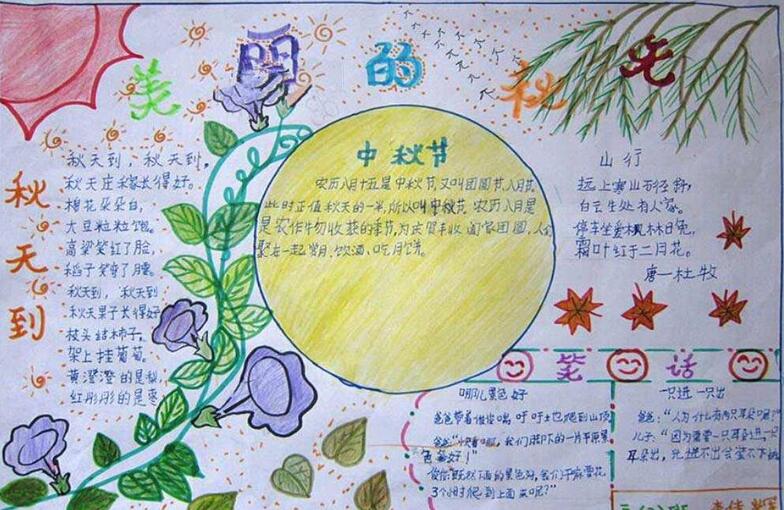 美丽的秋天
秋天到
秋天到，秋天到，
秋天庄稼长得好。
棉花朵朵白，
大豆粒粒饱。
高粱笑红了脸，
稻子笑弯了腰。
秋天到，秋天到
秋天果子长得好
枝头结柿子。
架上挂葡萄。
黄澄澄的是梨，
红彤彤的是枣
中秋节
农历八月十五是中秋节，又叫团圆节，八月节
此时正值秋天的一半，所以叫中秋节。农历八月是
是农作物收获的季节，为庆贺丰收阖家团圆，人们
聚在一起赏月、饮酒、吃月饼。
山行
远上寒山石径斜，
白云生处有人家。
停车坐爱枫林晚，
霜叶红于二月花。
唐一杜牧
笑话
哪儿景色好
爸爸带着俊俊喘吁吁地爬到山顶
爸爸"快看哪，我们脚下的一片平原景
色多好！"
俊俊"既然下面的景色好，我们干嘛要花
3个小时爬到上面来呢？"
一只进一只出
爸爸："人为什么有两只耳朵呢？"
儿子："因为需要一只耳朵进一只
耳朵出，光进不出会装不下